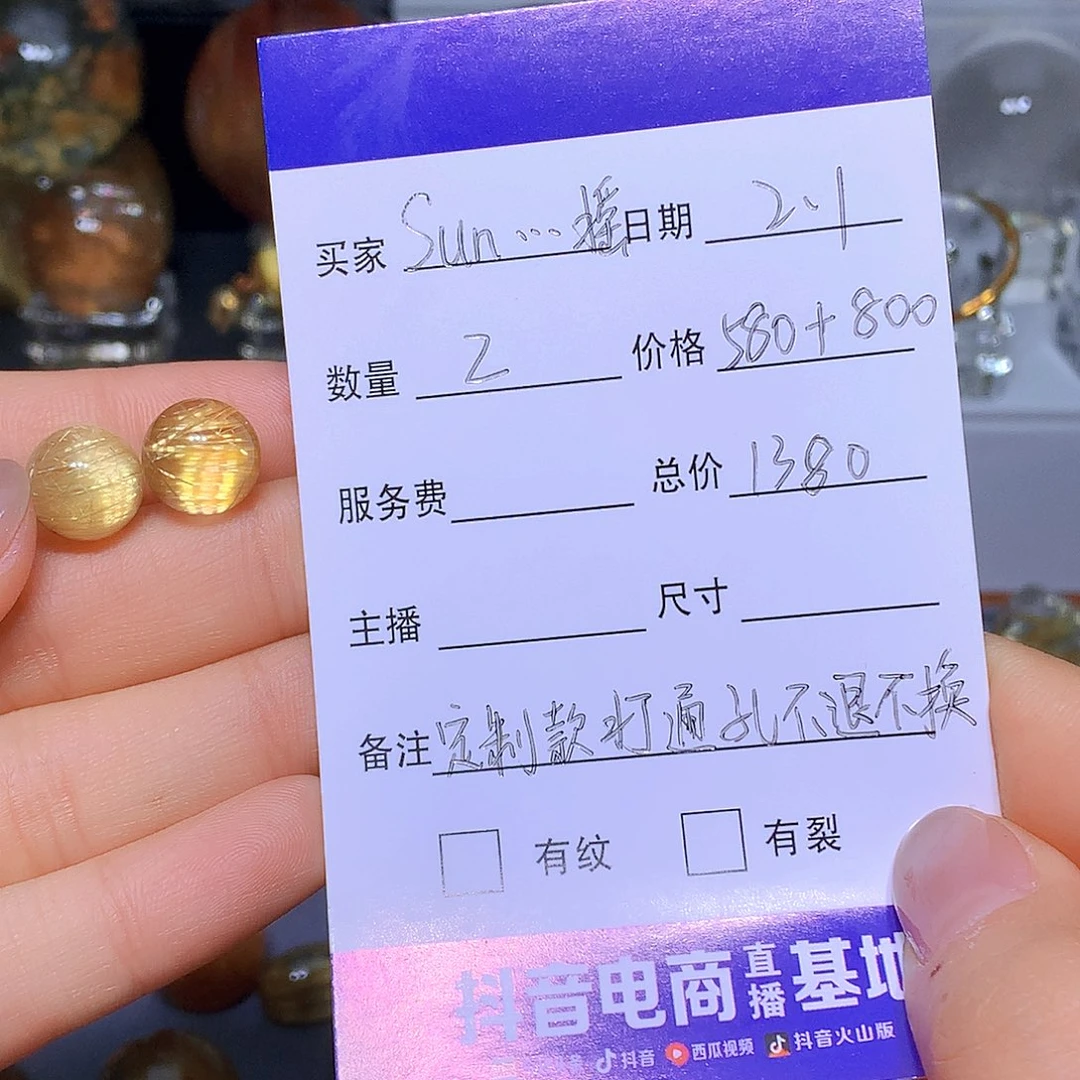 买家 Sun...摇 日期 2.1
数量 2 价格 580+800
服务费 总价 1380
主播 尺寸
备注 定制款打通孔不退不换
有纹 有裂
抖音电商直播基地
抖音 西瓜视频 抖音火山版